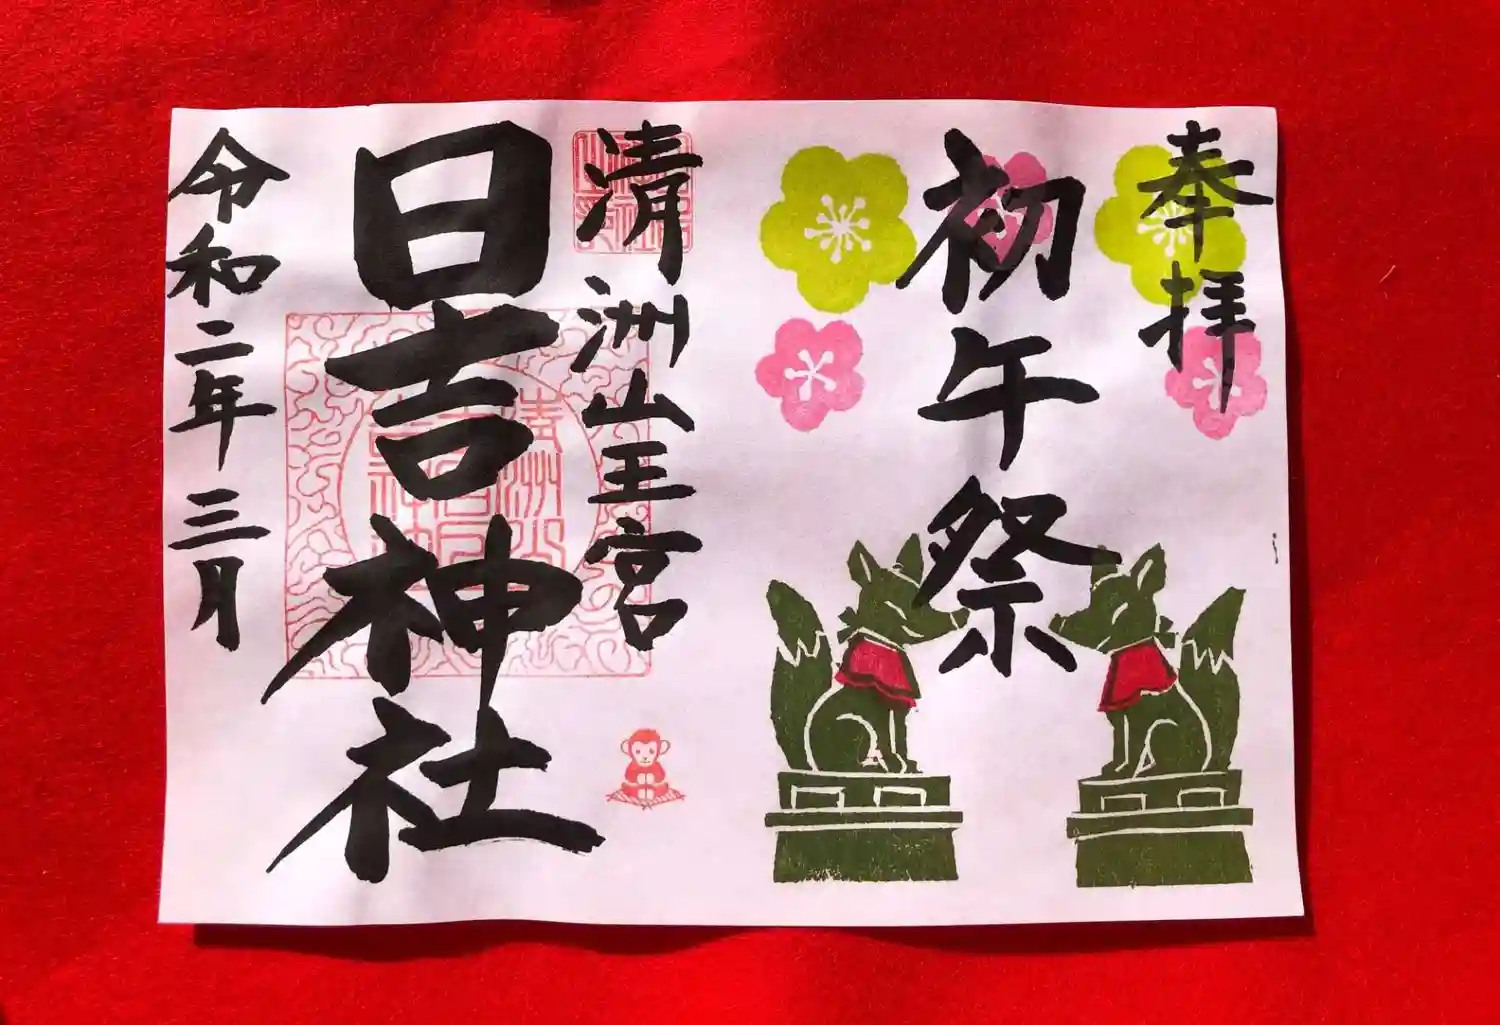 奉拝
初午祭
清洲山王宮
日吉神社
令和二年三月